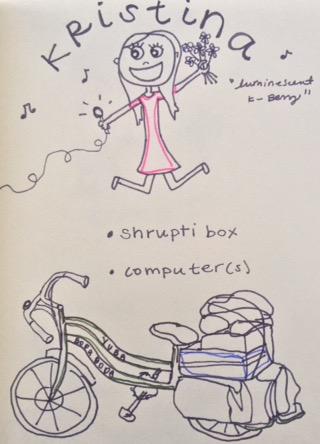 Kristina
"luminescent
K-Berry"
• shrupti box
• computer(s)
YUBA
BODA BODA